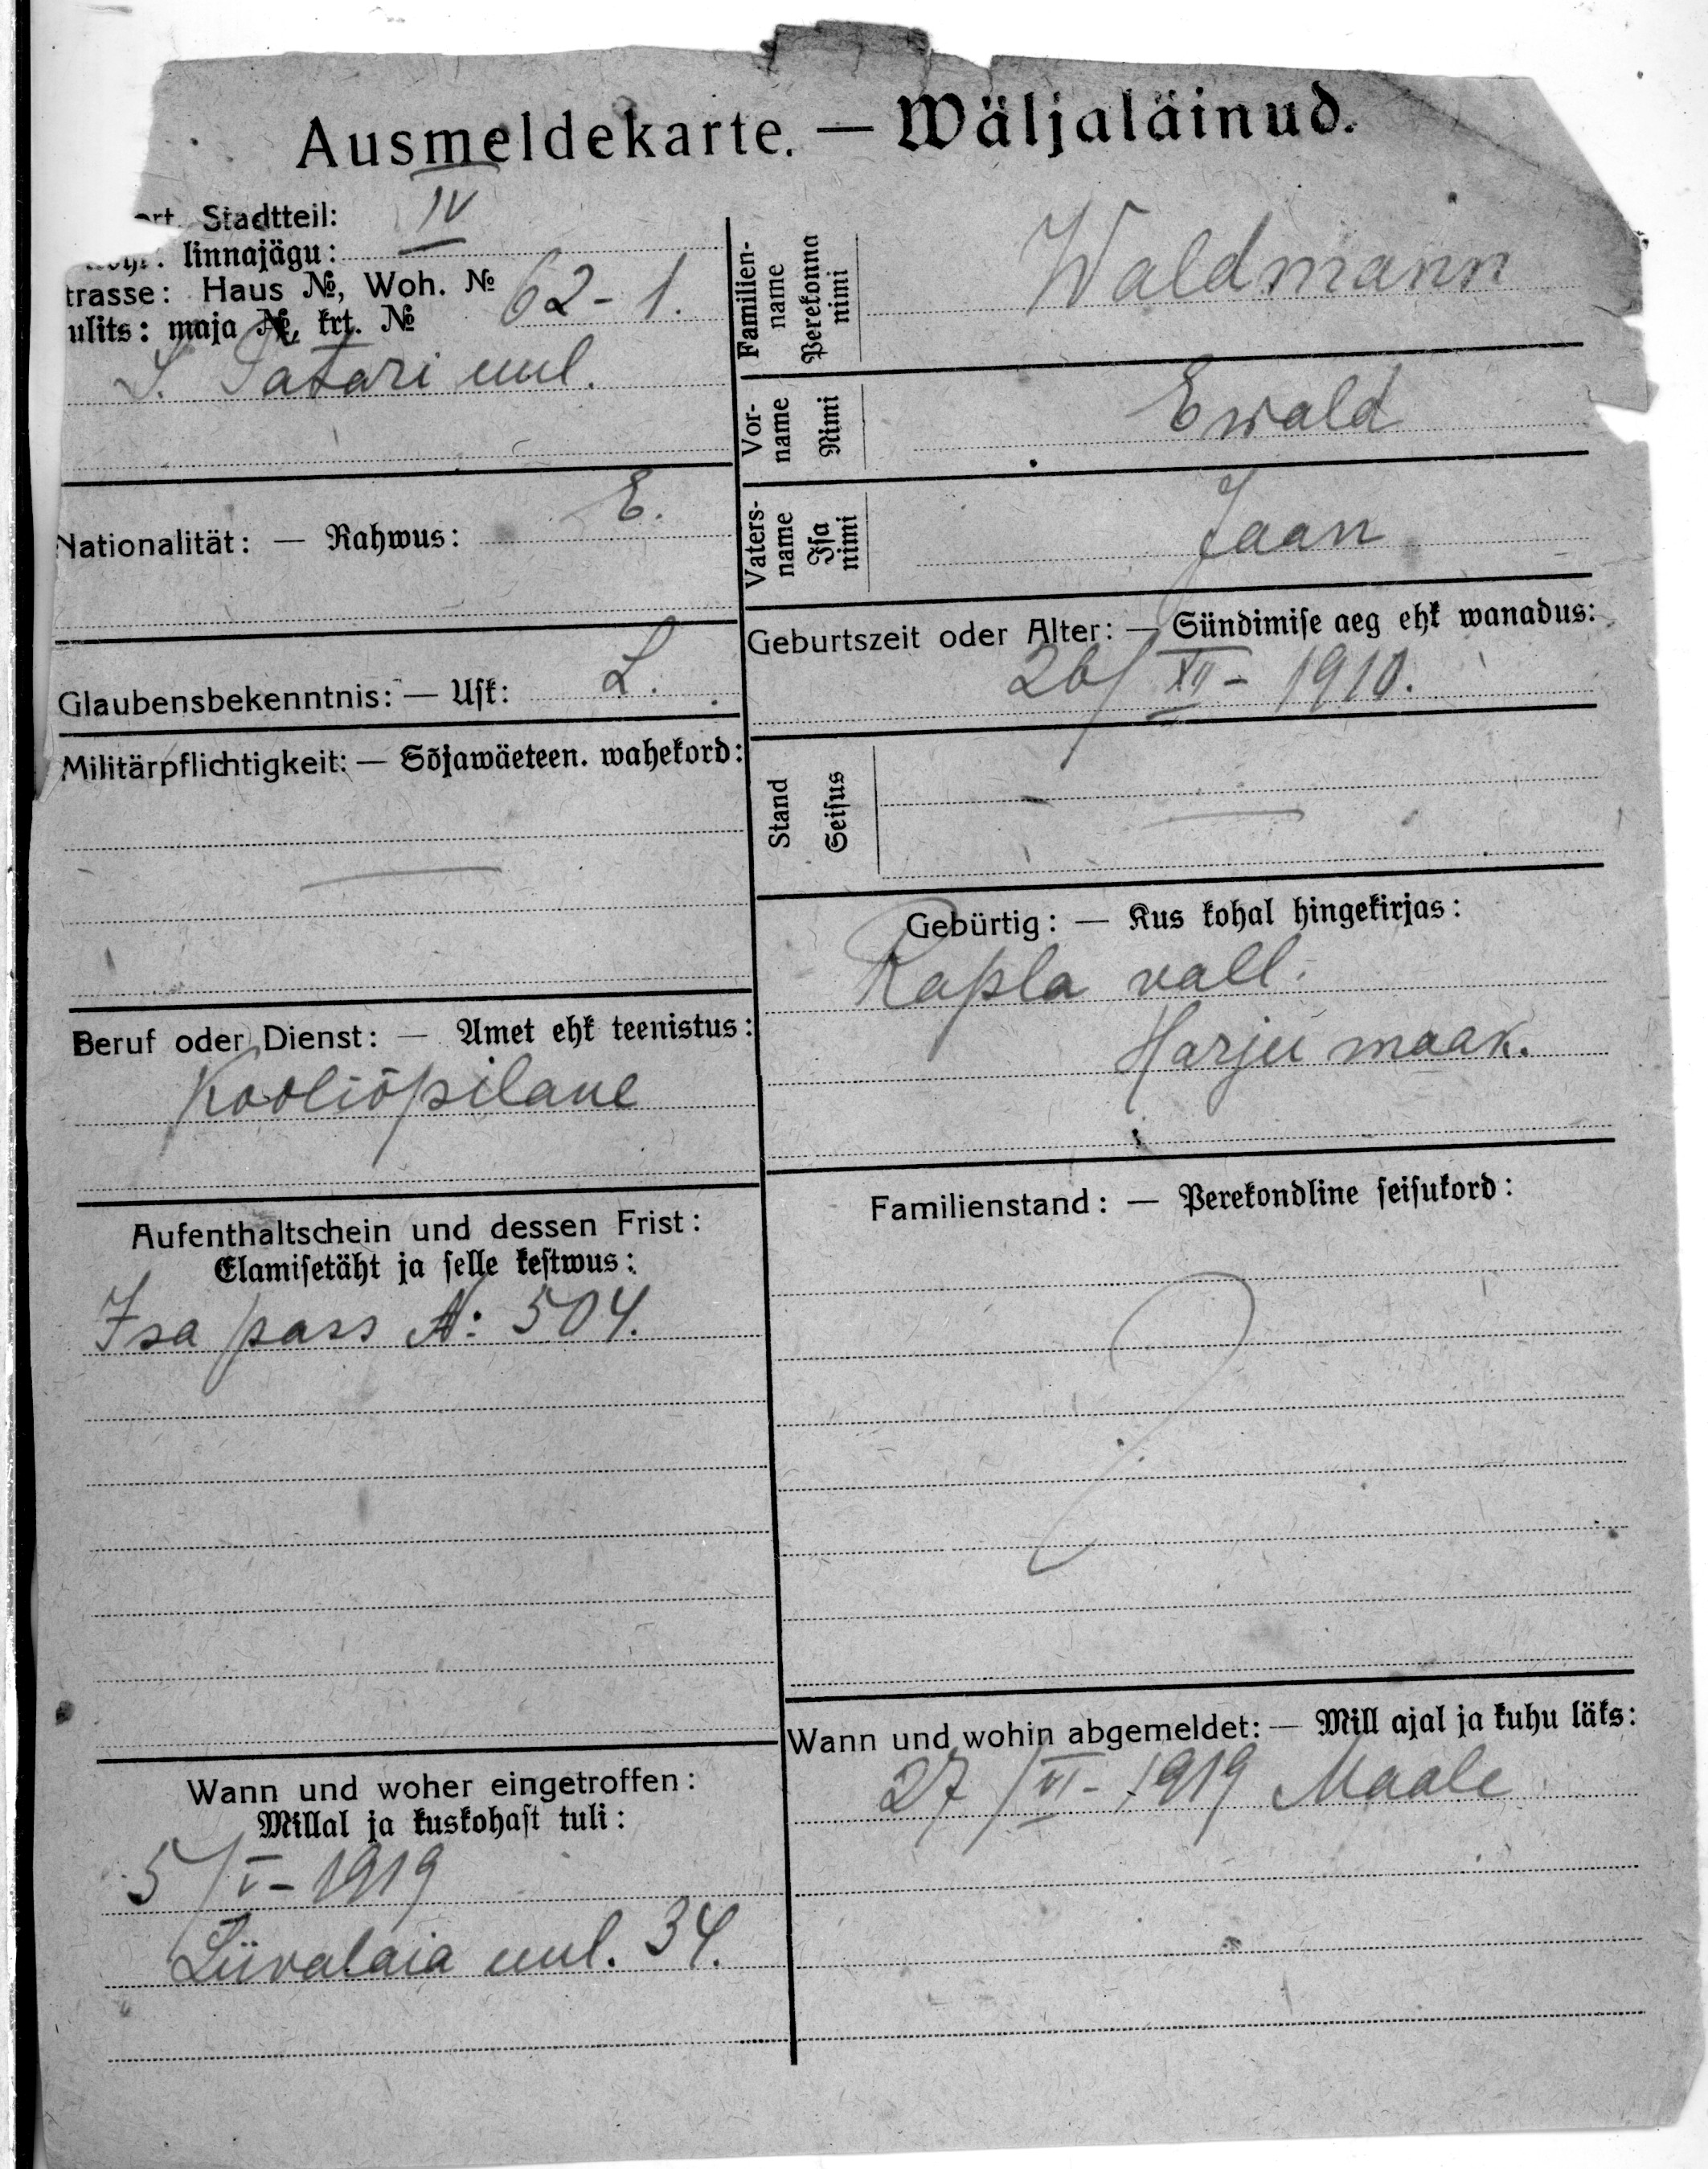 Ausmeldekarte. — Wäljaläinud.
Stadtteil: IV
linnajägu:
trasse: Haus №, Woh. № 62-1.
ulits: maja №, krt. №
S. Tatari uul.
Nationalität: — Rahwus: E.
Glaubensbekenntnis: — Usk: L.
Militärpflichtigkeit: — Sõjawäeteen. wahekord:
Beruf oder Dienst: — Amet ehk teenistus:
Kooliõpilane
Aufenthaltschein und dessen Frist:
Elamisetäht ja selle kestwus:
Isa pass №: 504.
Wann und woher eingetroffen:
Millal ja kuskohast tuli:
5/V-1919
Liivalaia uul. 34.
Familien-
name
Perekonna
nimi
Waldmann
Vor-
name
Nimi
Ewald
Vaters-
name
Isa
nimi
Jaan
Geburtszeit oder Alter: — Sündimise aeg ehk wanadus:
26/XII-1910.
Stand
Seisus
Gebürtig: — Kus kohal hingekirjas:
Rapla vall.
Harju maak.
Familienstand: — Perekondline seisukord:
Wann und wohin abgemeldet: — Mill ajal ja kuhu läks:
27/VI-1919 Maale